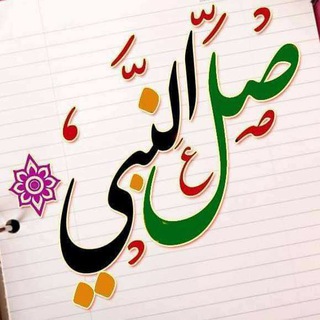 صل ع النبي